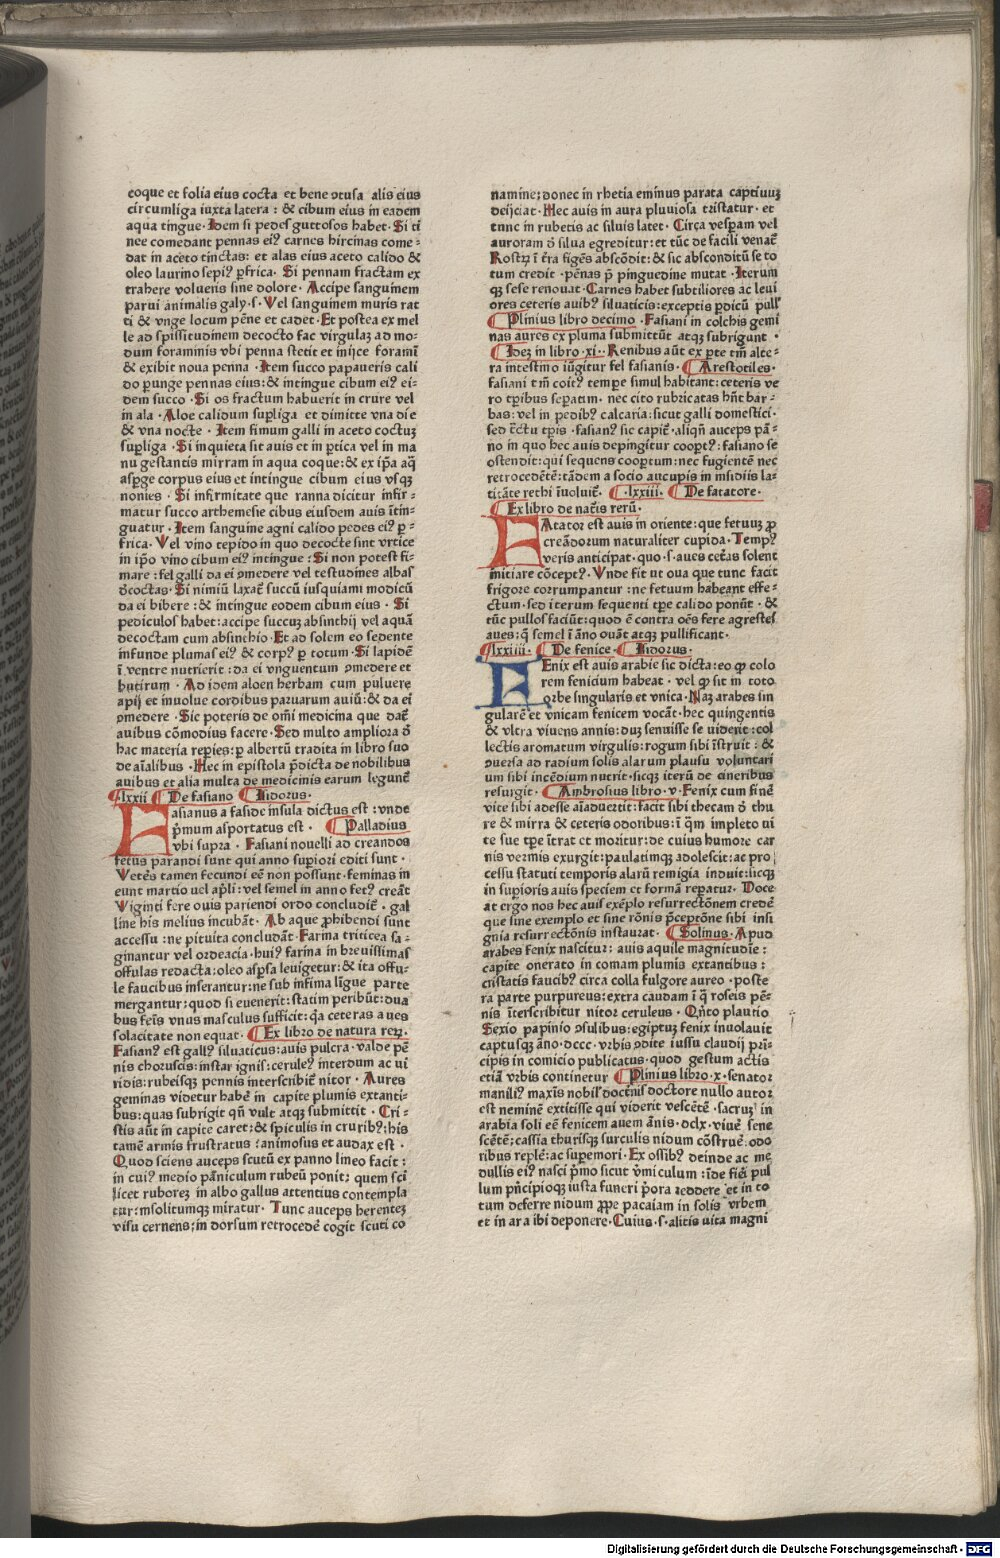 coque et folia eius cocta et bene ↄtusa alis eius
circumliga iuxta latera : & cibum eius in eadem
aqua tingue · Idem si pedes guttosos habet · Si ti
nee comedant pennas eiꝰ carnes hircinas come=
dat in aceto tinctas: et alas eius aceto calido &
oleo laurino sepiꝰ ꝑfrica · Si pennam fractam ex
trahere volueris sine dolore · Accipe sanguinem
parui animalis galy · s · Vel sanguinem muris rat
ti & vnge locum pēne et cadet · Et postea ex mel
le ad spissitudinem decocto fac virgulaꝫ ad mo=
dum foraminis vbi penna stetit et inijce foramī
& exibit noua penna · Item succo papaueris cali
do ꝑunge pennas eius: & intingue cibum eiꝰ ei=
dem succo · Si os fractum habuerit in crure vel
in ala · Aloe calidum supliga et dimitte vna die
& vna nocte · Item fimum galli in aceto coctuꝫ
supliga · Si inquieta sit auis et in ꝑtica vel in ma
nu gestantis mirram in aqua coque: & ex ip̄a aq̄
asꝑge corpus eius et intingue cibum eius vsqꝫ
nonies · Si infirmitate que ranna dicitur infir=
matur succo arthemesie cibus eiusdem auis ītin=
guatur · Item sanguine agni calido pedes eiꝰ ꝑ=
frica · Vel vino tepido in quo decocte sint vrtice
in ip̄o vino cibum eiꝰ intingue : Si non potest fi=
mare : fel galli da ei ↄmedere vel testudines albas
dcoctas · Si nimiū laxat̄ succū iusquiami modicū
da ei bibere : & intingue eodem cibum eius · Si
pediculos habet: accipe succuꝫ absinthij vel aquā
decoctam cum absinchio · Et ad solem eo sedente
infunde plumas eiꝰ & corpꝰ ꝑ totum · Si lapidē
ī ventre nutrierit : da ei vnguentum ↄmedere et
butirum · Ad idem aloen herbam cum puluere
apij et inuolue cordibus paruarum auiū: & da ei
ↄmedere · Sic poteris de om̄i medicina que dat̄
auibus cōmodius facere · Sed multo ampliora d̄
hac materia reꝑies: ꝑ albertū tradita in libro suo
de aīalibus · Hec in epistola p̄dicta de nobilibus
auibus et alia multa de medicinis earum legunt̄
lxxii De fasiano Isidorus ·
Fasianus a faside insula dictus est : vnde
p̄mum asportatus est · Palladius
vbi supra · Fasiani nouelli ad creandos
fetus parandi sunt qui anno supiori editi sunt ·
Vetēs tamen fecundi eē non possunt · feminas in
eunt martio uel ap̄li: vel semel in anno fetꝰ creāt
Viginti fere ouis pariendi ordo concludit̄ · gal
line his melius incubāt · Ab aque ꝓhibendi sunt
accessu : ne pituita concludāt · Farma triticea sa=
ginantur vel ordeacia · huiꝰ farina in breuissimas
offulas redacta: oleo asꝑsa leuigetur: & ita offu=
le faucibus inserantur: ne sub infima līgue parte
mergantur; quod si euenerit: statim peribūt: dua
bus feīs vnus masculus sufficit: q̄a ceteras aues
solacitate non equat · Ex libro de natura reꝝ ·
Fasianꝰ est gallꝰ siluaticus: auis pulcra · valde pē
nis choruscis: instar ignis: ceruleꝰ interdum ac ui
ridis: rubeisqꝫ pennis interscribit̄ nitor · Aures
geminas videtur habeē in capite plumis extanti=
bus: quas subrigit qn̄ vult atqꝫ submittit · Cri=
stis aūt in capite caret: & spiculis in cruribꝰ; his
tamē armis frustratus : animosus et audax est ·
Quod sciens auceps scutū ex panno lineo facit :
in cuiꝰ medio pāniculum rubeū ponit; quem sci
licet ruboreꝫ in albo gallus attentius contempla
tur: insolitumqꝫ miratur · Tunc auceps herenteꝫ
visu cernens; in dorsum retrocedē cogit scuti co
namine; donec in rhetia eminus parata captiuuꝫ
deijciat · Hec auis in aura pluuiosa tristatur · et
tunc in rubetis ac siluis latet · Circa vesꝑam vel
auroram d̄ silua egreditur: et tūc de facili venat̄
Rostꝝ ī t̄ra figēs abscōdit: & sic absconditū se to
tum credit · pēnas ꝑ pinguedine mutat · Iterum
qꝫ sese renouat · Carnes habet subtiliores ac leui
ores ceteris auibꝰ siluaticis: exceptis ꝑdicū pull̕
Plinius libro decimo · Fasiani in colchis gemi
nas aures ex pluma submittūt atqꝫ subrigunt ·
Ideꝫ in libro · xi · Renibus aūt ex ꝑte tm̄ alte=
ra intestino iūgitur fel fasianis · Arestotiles ·
fasiani tm̄ coitꝰ tempe simul habitant: ceteris ve
ro tp̄ibus seꝑatim · nec cito rubricatas hn̄t bar=
bas: vel in pedibꝰ calcaria: sicut galli domestici ·
sed t̄cctu tp̄is · fasianꝰ sic capit̄ · aliqn̄ auceps pā=
no in quo hec auis depingitur cooptꝰ: fasiano se
ostendit: qui sequens cooptum: nec fugientē nec
retrocedētē: tādem a socio aucupis in insidiis la=
titāte rethi īuoluit̄ · lxxiii · De fatatore ·
Ex libro de nat̄is rerū ·
FAtator est auis in oriente: que fetuuꝫ ꝓ
creādorum naturaliter cupida · Tempꝰ
veris anticipat · quo · s · aues cet̄as solent
initiare cōceptꝰ · Vnde fit ut oua que tunc facit
frigore corrumpantur : ne fetuum habeant effe=
ctum · sed iterum sequenti tp̄e calido ponūt · &
tūc pullos faciūt: quod ē contra oēs fere agrestes
aues: q̄ semel ī āno ouāt atqꝫ pullificant ·
lxxiiii · De fenice · Isidorus ·
FEnix est auis arabie sic dicta: eo qꝫ colo
rem fenicium habeat · vel qꝫ sit in toto
orbe singularis et vnica · Naꝫ arabes sin
gularē et vnicam fenicem vocāt · hec quingentis
& vltra viuens annis: duꝫ senuisse se uiderit: col
lectis aromatum virgulis: rogum sibi īstruit : &
ↄuersa ad radium solis alarum plausu voluntari
um sibi incēdium nutrit · sicqꝫ iterū de cineribus
resurgit · Ambrosius libro · v · Fenix cum finē
vite sibi adesse aīaduertit: facit sibi thecam d̄ thu
re & mirra & ceteris odoribus: ī q̄m impleto ui
te sue tp̄e ītrat et moritur: de cuius humore car
nis vermis exurgit: paulatimqꝫ adolescit: ac pro
cessu statuti temporis alarū remigia induit: sicqꝫ
in supioris auis speciem et formā reꝑatur · Doce
at ergo nos hec auis exēplo resurrectōnem credē
que sine exemplo et sine rōnis p̄ceptōne sibi insi
gnia resurrectōnis instaurat · Solinus · Apud
arabes fenix nascitur: auis aquile magnitudīe:
capite onerato in comam plumis extantibus :
cristatis faucibꝰ circa colla fulgore aureo · poste
ra parte purpureus: extra caudam ī q̄ roseis pē=
nis īterscribitur nitor ceruleus · Qn̄to plautio
Sexio papinio ↄsulibus: egiptuꝫ fenix inuolauit
captusqꝫ āno · dccc · vrbis ↄdite iussu claudij prī=
cipis in comicio publicatus · quod gestum actis
etiā vrbis continetur Plinius libro · x · senator
maniliꝰ maxīs nobil̕ doctrīs doctore nullo autor
est neminē extitisse qui viderit vescētē · sacruꝫ in
arabia soli eē fenicem auem ānis · dclx · viuē sene
scētē; cassia thurisqꝫ surculis nidum cōstruē: odo
ribus replē: ac supemori · Ex ossibꝰ deinde ac me
dullis eiꝰ nasci p̄mo sicut v̄miculum : īde fici pul
lum pn̄cipioqꝫ iusta funeri p̄ora reddere et in to
tum deferre nidum ꝓpe pacaiam in solis vrbem
et in ara ibi deponere · Cuius · s · alitis uita magni
Digitalisierung gefördert durch die Deutsche Forschungsgemeinschaft - DFG